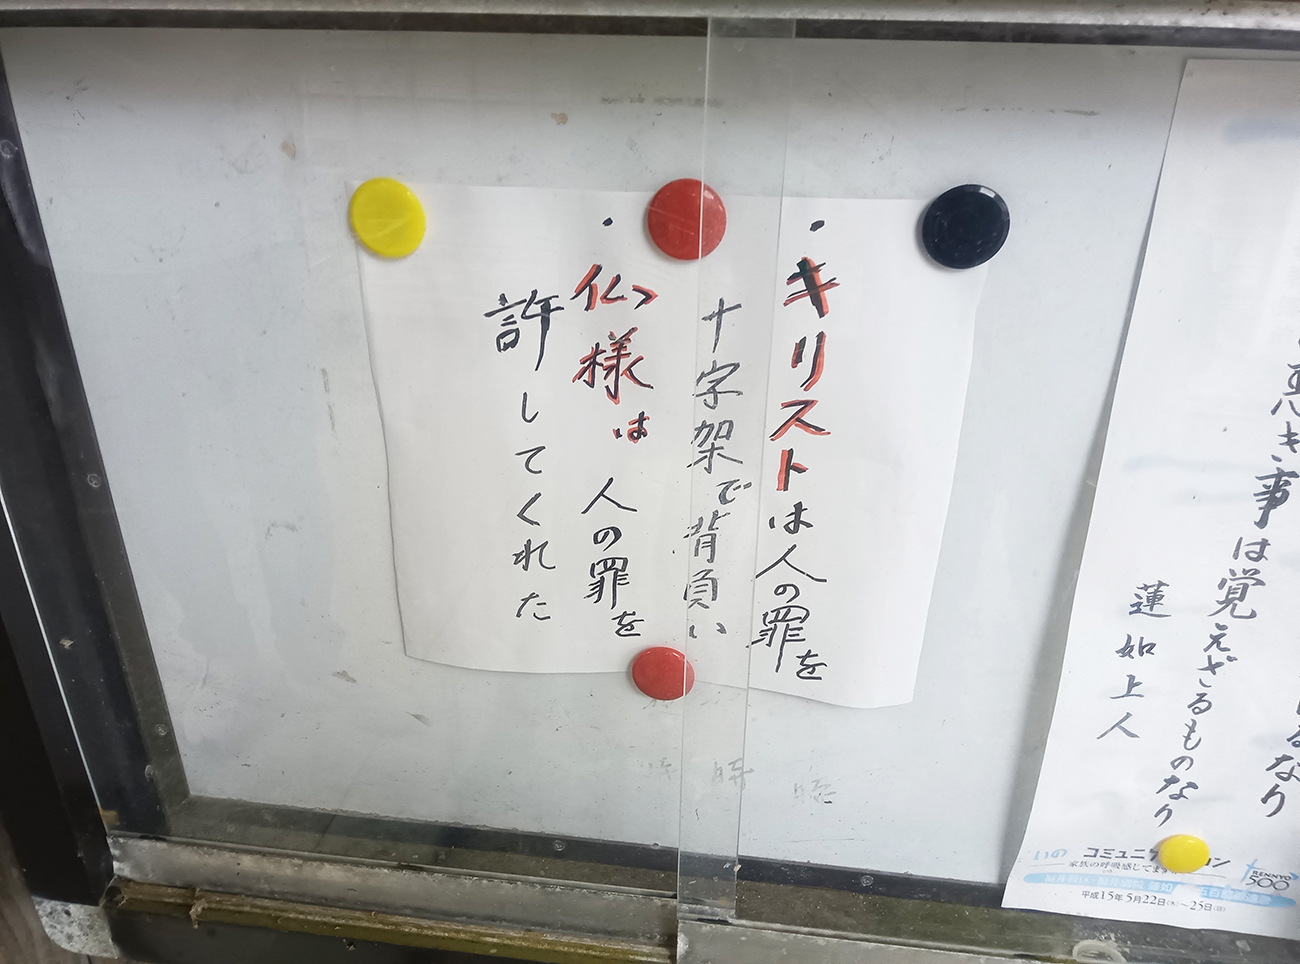 ・キリストは人の罪を
十字架で背負い
・仏様は人の罪を
許してくれた
るなり
悪き事は覚えざるものなり
蓮如上人
いの コミュニ
家族の呼吸感じてます
RENNYO
500
平成15年5月22日(木)〜25日(日)